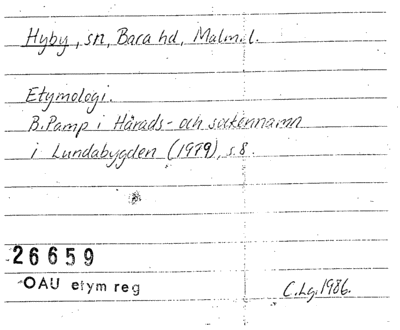 Hyby, sn, Bara hd, Malm. l.
Etymologi.
B. Pamp i Härads- och sockennamn
i Lundabygden (1979), s. 8.
26659
OAU etym reg
C. Lg. 1986.